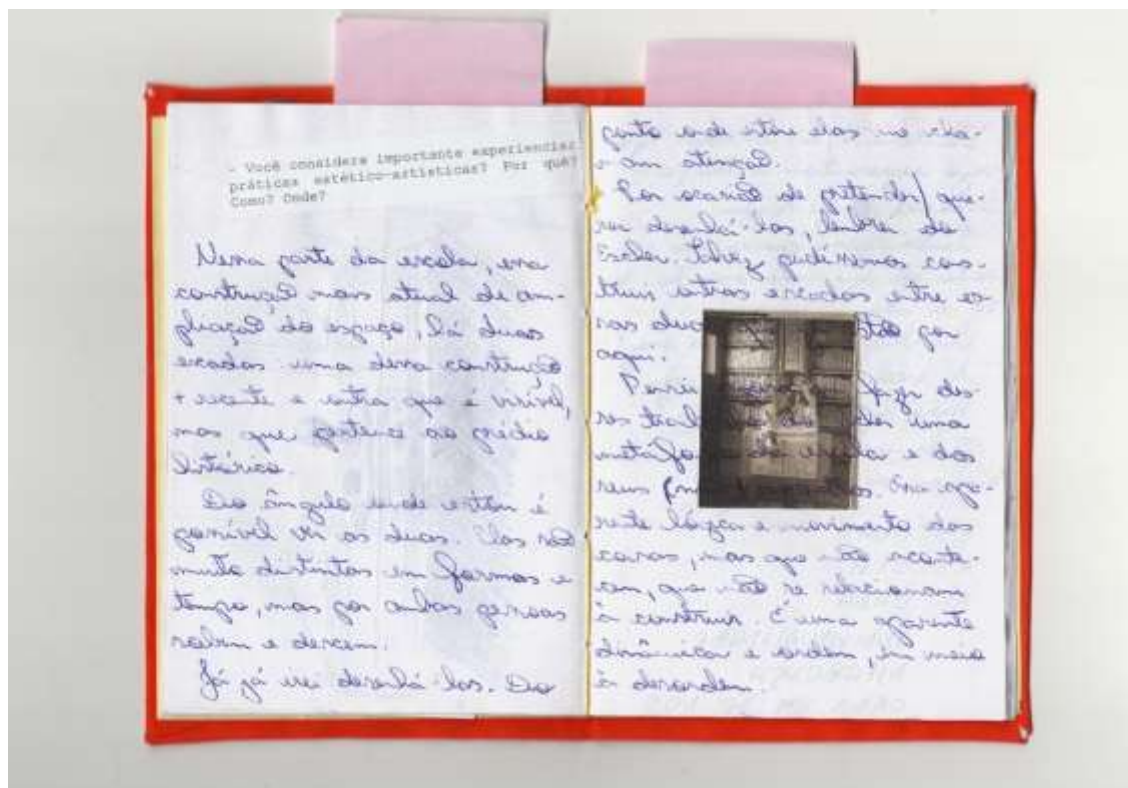 - Você considera importante experienciar
práticas estético-artísticas? Por quê?
Como? Onde?
Nessa parte da escola, essa
construção mais atual de am-
pliação do espaço, há duas
escadas uma dessa construção
+ recente e outra que é visível,
mas que pertence ao prédio
histórico.
Do ângulo onde estou é
possível ver as duas. Elas são
muito distintas em formas e
tempo, mas por ambas pessoas
sobem e descem.
Já já irei desenhá-las. Do
ponto onde estou elas me cha-
mam atenção.
Por ocasião de pretender/que-
rer desenhá-las, lembrei de
Escher. Talvez pudéssemos cons-
truir outras escadas entre es-
sas duas que estão por
aqui.
Pensei fazer des-
ses uma
metáfora da escola e dos
seus
rente lógica e movimento das
coisas, mas que não aconte-
cem, que não se relacionam
à construir. É uma aparente
dinâmica e ordem, em meio
à desordem.